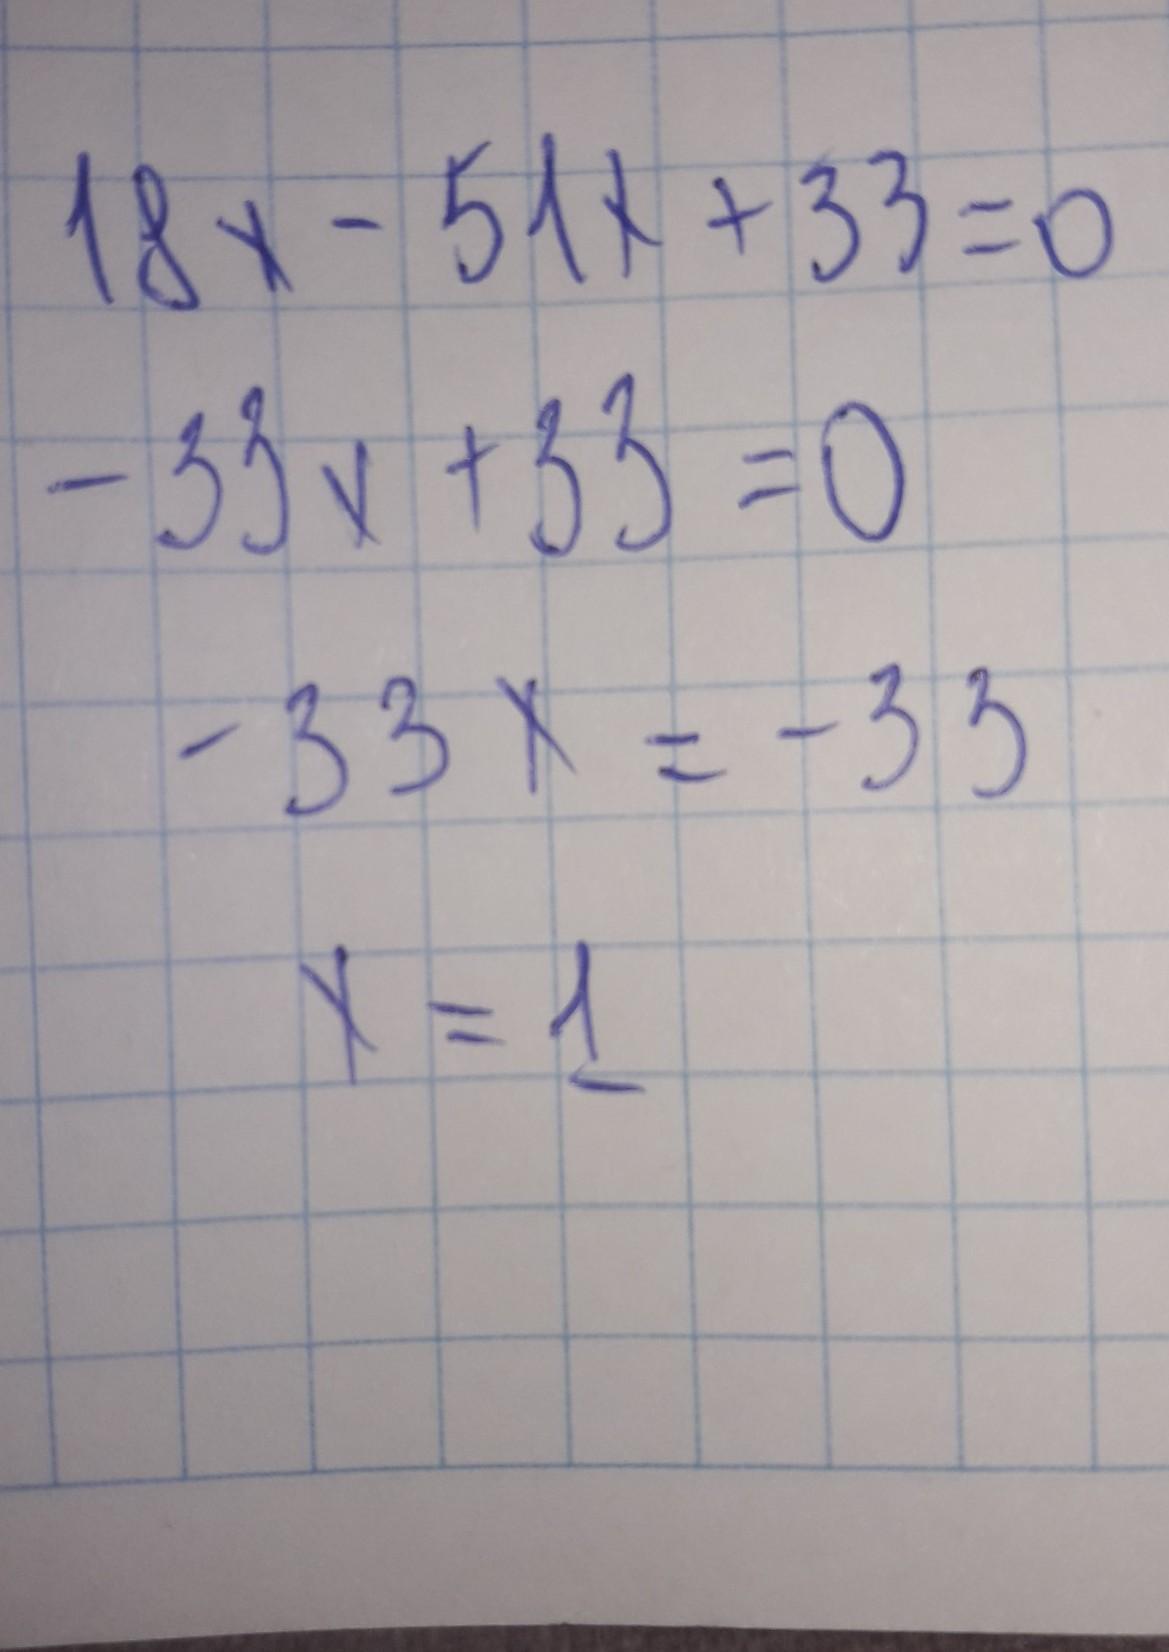 18x - 51x + 33 = 0
-33x + 33 = 0
-33x = -33
x = 1